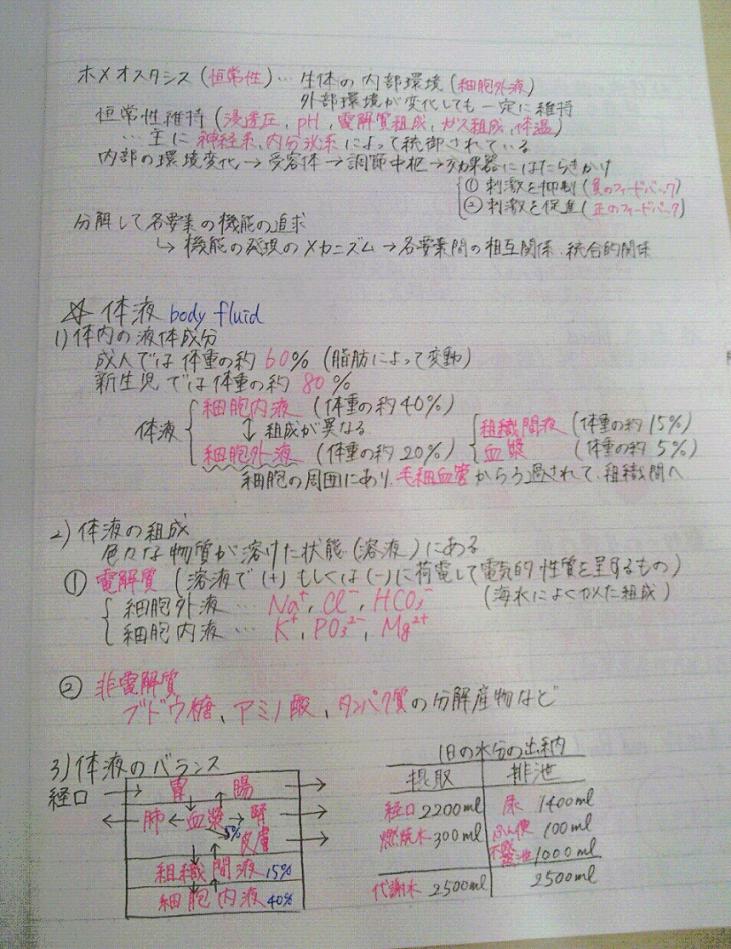 ホメオスタシス(恒常性)… 生体の内部環境(細胞外液)
外部環境が変化しても一定に維持
恒常性維持(浸透圧, pH, 電解質組成, ガス組成, 体温)
… 主に神経系, 内分泌系によって統御されている
内部の環境変化→受容体→調節中枢→効果器にはたらきかけ
① 刺激を抑制(負のフィードバック)
② 刺激を促進(正のフィードバック)
分解して各要素の機能の追求
↳ 機能の発現のメカニズム→各要素間の相互関係、統合的関係
☆ 体液 body fluid
1)体内の液体成分
成人では体重の約60%(脂肪によって変動)
新生児では体重の約80%
体液
細胞内液(体重の約40%)
↕ 組成が異なる
細胞外液(体重の約20%)
組織間液(体重の約15%)
血漿(体重の約5%)
細胞の周囲にあり、毛細血管からろ過されて、組織間へ
2)体液の組成
色々な物質が溶けた状態(溶液)にある
① 電解質(溶液で(+)もしくは(-)に荷電して電気的性質を呈するもの)
細胞外液 … Na⁺, Cl⁻, HCO₃⁻ (海水によくにた組成)
細胞内液 … K⁺, PO₃²⁻, Mg²⁺
② 非電解質
ブドウ糖、アミノ酸、タンパク質の分解産物など
3)体液のバランス
経口→ 胃 腸 →
← 肺 ← 血漿 → 腎 →
5% 皮膚 →
組織間液 15%
細胞内液 40%
1日の水分の出納
摂取 排泄
経口 2200ml 尿 1400ml
燃焼水 300ml ふん便 100ml
1000ml
代謝水 2500ml 2500ml